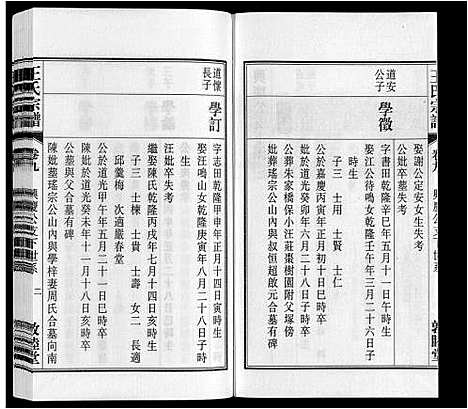 王氏宗譜
卷九
興慶公支下世系
敦睦堂
道安
公子
學徵
娶謝公定安女生失考
汪妣卒墓失考
字書田乾隆辛巳年五月十一日午時生
娶江公待鳴女乾隆壬午年三月二十六日子
時生
子三 士用 士賢 士仁
公於嘉慶丙寅年正月初十日巳時卒
妣於道光癸卯年六月二十八日子時卒
公葬朱家橋保小汪莊棗樹園附父塚傍
妣葬瑤宗公山內與叔恒超啟元合墓有碑
道懷
長子
學訂
字志田乾隆甲申年正月十四日寅時生
娶汪鳴山女乾隆庚寅年八月二十八日子時
生
汪妣卒失考
繼娶陳氏乾隆丙戌年七月十四日亥時生
子三 士棟 士貴 士壽 女二 長適
邱藁梅 次適嚴春堂
公於道光甲午年五月二十一日巳時卒
妣於道光癸未年十一月十八日亥時卒
公墓與父母合墓有碑
陳妣墓瑤宗公山內與學梓妻周氏合墓向南
王氏宗譜
卷九
興慶公支下世系
二
敦睦堂